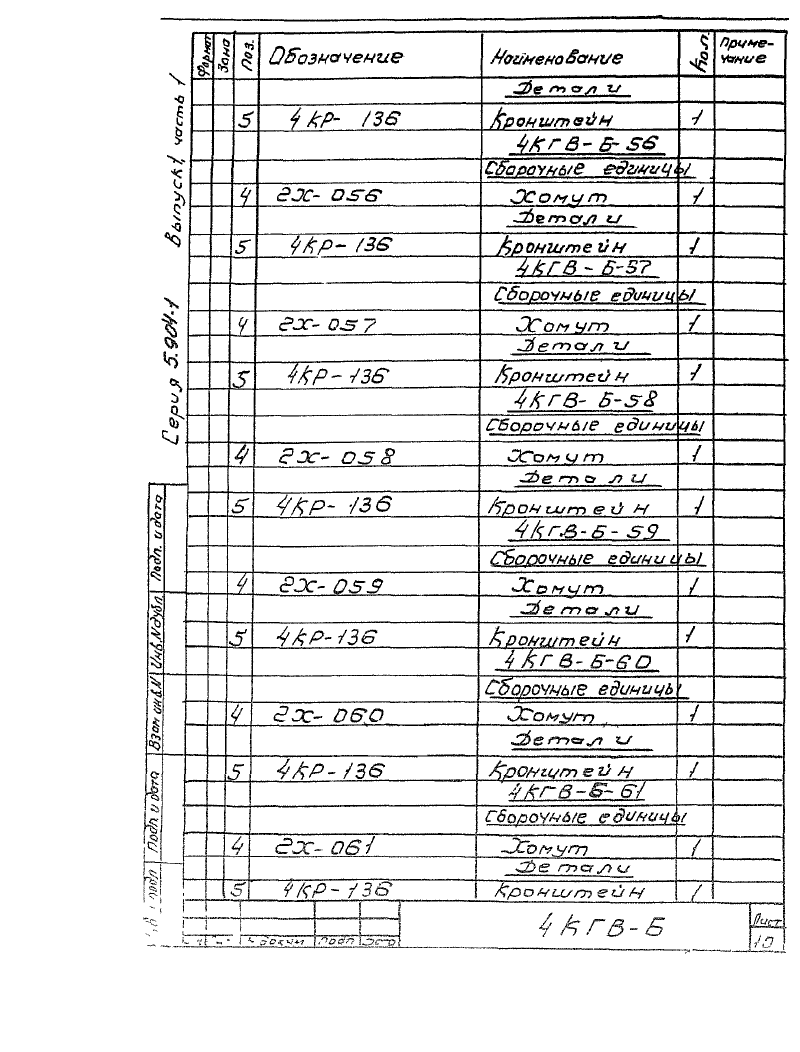 Формат Зона Поз. Обозначение Наименование Кол. Примечание
Детали
5 4КР-136 Кронштейн 1
4КГВ-Б-56
Сборочные единицы
4 2Х-056 Хомут 1
Детали
5 4КР-136 Кронштейн 1
4КГВ-Б-57
Сборочные единицы
4 2Х-057 Хомут 1
Детали
5 4КР-136 Кронштейн 1
4КГВ-Б-58
Сборочные единицы
4 2Х-058 Хомут 1
Детали
5 4КР-136 Кронштейн 1
4КГВ-Б-59
Сборочные единицы
4 2Х-059 Хомут 1
Детали
5 4КР-136 Кронштейн 1
4КГВ-Б-60
Сборочные единицы
4 2Х-060 Хомут 1
Детали
5 4КР-136 Кронштейн 1
4КГВ-Б-61
Сборочные единицы
4 2Х-061 Хомут 1
Детали
5 4КР-136 Кронштейн 1
4КГВ-Б
Лист
10
докум Подп
Серия 5.904-1 Выпуск 1, часть 1
Подп. и дата
Инв.№дубл.
Взам инв.№
Подп и дата